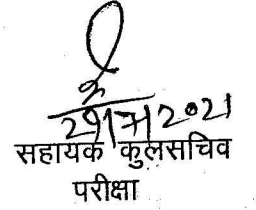 29/7/2021
सहायक कुलसचिव
परीक्षा